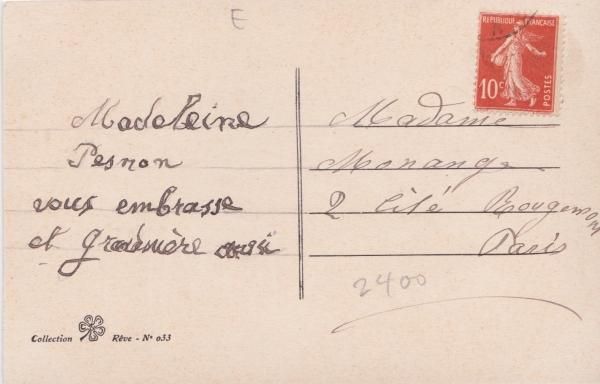 E
REPUBLIQUE FRANÇAISE
10c
POSTES
Madeleine
Pesnon
vous embrasse
et Gradmère aussi
Madame
Monange
2 Cité Rougemont
Paris
2400
Collection Rêve - N° 033